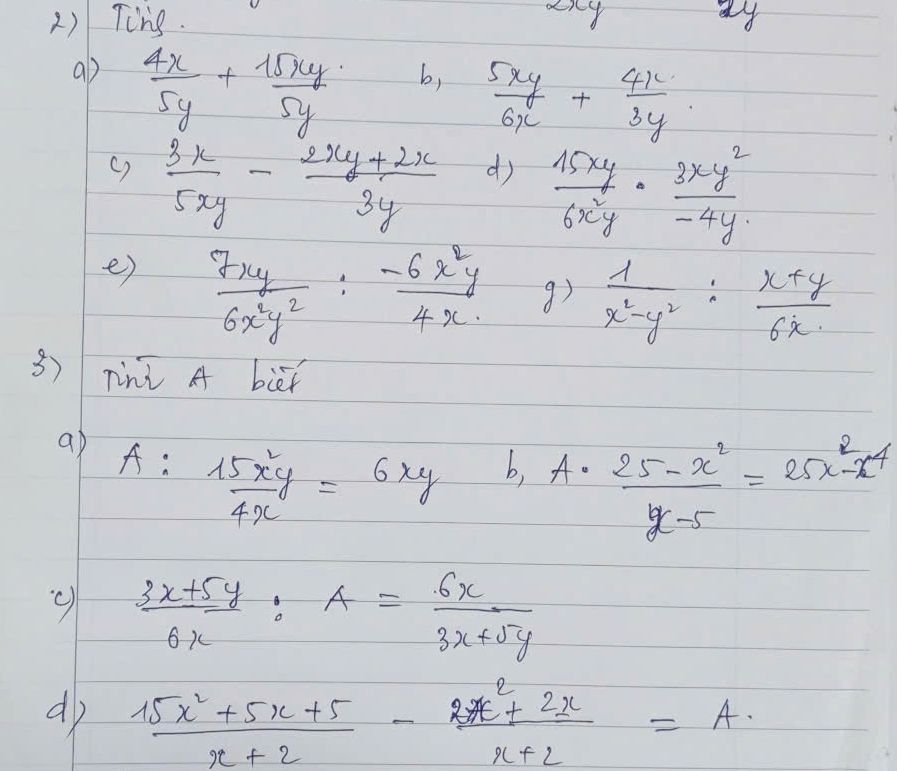 2xy 2y
2) Tính.
a) 4x/5y + 15xy/5y. b, 5xy/6x + 4x/3y.
c) 3x/5xy - (2xy+2x)/3y d) 15xy/6x²y . 3xy²/-4y.
e) 7xy/6x²y² : -6x²y/4x. g) 1/(x²-y²) : (x+y)/6x.
3) Tính A biết
a) A : 15x²y/4x = 6xy b, A . (25-x²)/(x-5) = 25x²-x⁴
c) (3x+5y)/6x : A = 6x/(3x+5y)
d) (15x²+5x+5)/(x+2) - (2x²+2x)/(x+2) = A.